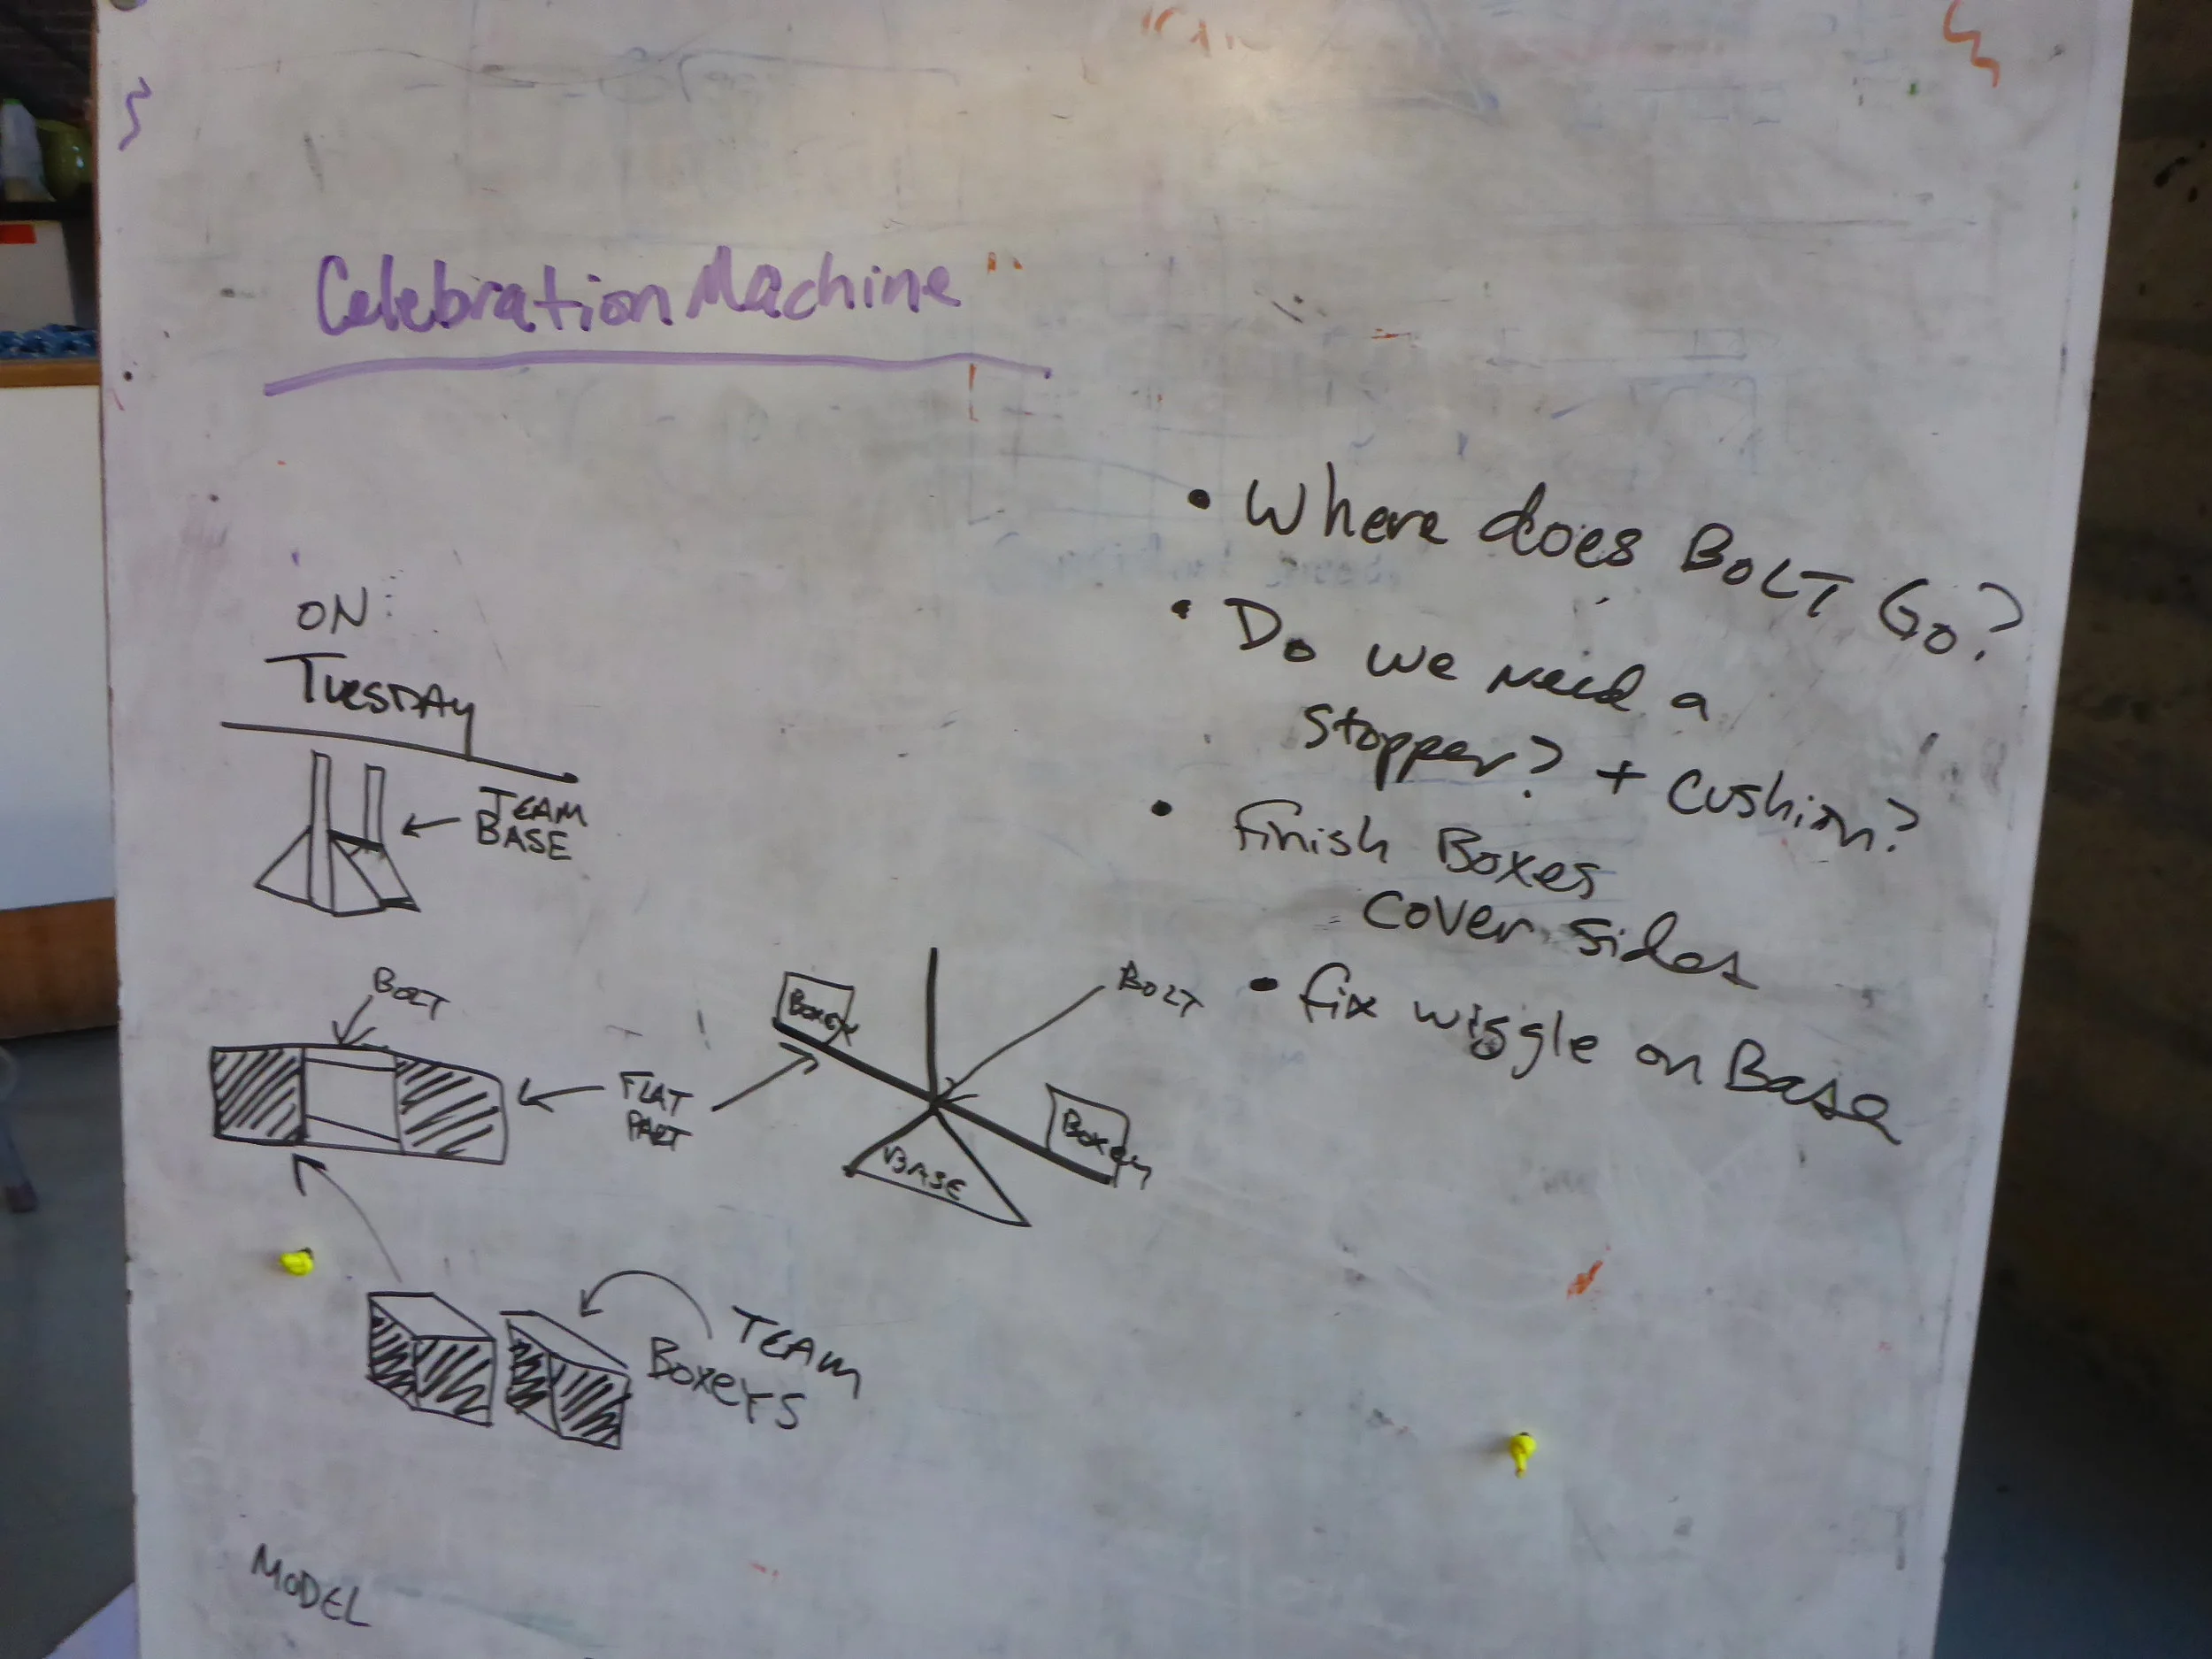 Celebration Machine
ON:
TUESDAY
TEAM
BASE
BOLT
FLAT
PART
TEAM
BOXEYS
MODEL
BOXEY
BOLT
BOXEY
BASE
• Where does BOLT Go?
• Do we need a
stopper? + cushion?
• finish Boxes
cover sides
• fix wiggle on Base